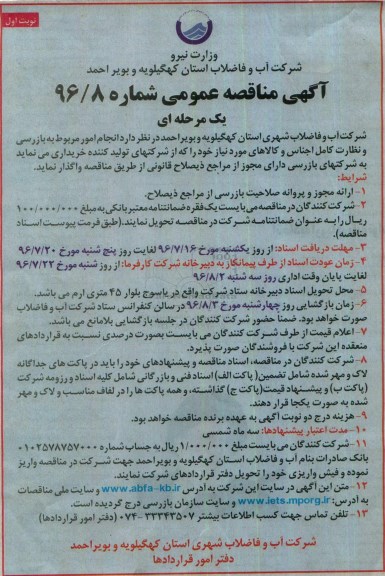 نوبت اول
وزارت نیرو
شرکت آب و فاضلاب استان کهگیلویه و بویر احمد
آگهی مناقصه عمومی شماره ۹۶/۸
یک مرحله ای
شرکت آب و فاضلاب شهری استان کهگیلویه و بویراحمد در نظر دارد انجام امور مربوط به بازرسی
و نظارت کامل اجناس و کالاهای مورد نیاز خود را که از شرکتهای تولید کننده خریداری می نماید
به شرکتهای بازرسی دارای مجوز از مراجع ذیصلاح قانونی از طریق مناقصه واگذار نماید.
شرایط:
۱- ارائه مجوز و پروانه صلاحیت بازرسی از مراجع ذیصلاح.
۲- شرکت کنندگان در مناقصه می بایست یک فقره ضمانتنامه معتبر بانکی به مبلغ ۱۰۰/۰۰۰/۰۰۰
ریال رابه عنوان ضمانتنامه شرکت در مناقصه تحویل نمایند.(طبق فرمت پیوست اسناد
مناقصه).
۳- مهلت دریافت اسناد: از روز یکشنبه مورخ ۹۶/۷/۱۶ لغایت روز پنج شنبه مورخ ۹۶/۷/۲۰
۴- زمان عودت اسناد از طرف پیمانکار به دبیرخانه شرکت کارفرما: از روز شنبه مورخ ۹۶/۷/۲۲
لغایت پایان وقت اداری روز سه شنبه ۹۶/۸/۲
۵- محل تحویل اسناد دبیرخانه ستاد شرکت واقع در یاسوج بلوار ۴۵ متری ارم می باشد.
۶- زمان بازگشایی روز چهارشنبه مورخ ۹۶/۸/۳ در سالن کنفرانس ستاد شرکت آب و فاضلاب
صورت خواهد بود. ضمنا حضور شرکت کنندگان در جلسه بازگشایی بلامانع می باشد.
۷- اعلام قیمت از طرف شرکت کنندگان می بایست بصورت درصدی نسبت به قراردادهای
منعقده این شرکت با فروشندگان صورت پذیرد.
۸- شرکت کنندگان در مناقصه، اسناد مناقصه و پیشنهادهای خود را باید در پاکت های جداگانه
لاک و مهر شده شامل تضمین( پاکت الف) اسناد فنی و بازرگانی شامل کلیه اسناد و رزومه شرکت
(پاکت ب) و پیشنهاد قیمت(پاکت ج) گذاشته، و همه پاکت ها را در لفاف مناسب و لاک و مهر
شده به صورت یکجا قرار دهند.
۹- هزینه درج دو نوبت آگهی به عهده برنده مناقصه خواهد بود.
۱۰- مدت اعتبار پیشنهادها: سه ماه شمسی
۱۱- شرکت کنندگان می بایست مبلغ ۱/۰۰۰/۰۰۰ ریال به حساب شماره ۰۱۰۲۵۷۸۷۵۷۰۰۰
بانک صادرات بنام آب و فاضلاب استان کهگیلویه و بویراحمد جهت شرکت در مناقصه واریز
نموده و فیش واریزی خود را تحویل دفتر قراردادهای شرکت نمایند.
۱۲- متن این آگهی در سایت این شرکت به آدرس www.abfa-kb.ir و سایت ملی مناقصات
به آدرس: www.iets.mporg.ir و سایت سازمان بازرسی درج گردیده است.
۱۳- تلفن تماس جهت کسب اطلاعات بیشتر ۳۳۳۴۳۵۰۷-۰۷۴ (دفتر امور قراردادها)
شرکت آب و فاضلاب شهری استان کهگیلویه و بویراحمد
دفتر امور قراردادها